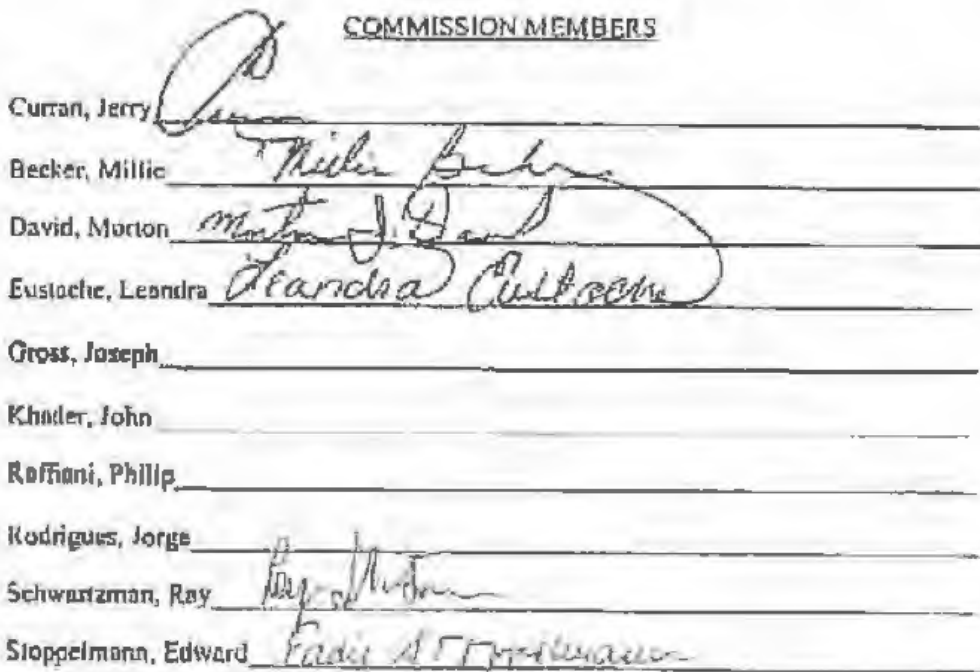 COMMISSION MEMBERS
Curran, Jerry Curran
Becker, Millie Millie Becker
David, Morton Morton J. David
Eustache, Leandra Leandra Eustache
Gross, Joseph
Khader, John
Raffiani, Philip
Rodrigues, Jorge
Schwartzman, Ray
Stoppelmann, Edward Stoppelmann